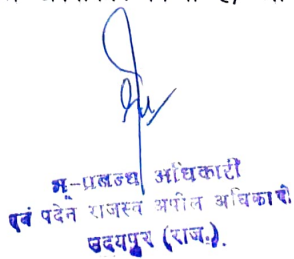 भू-प्रबन्ध अधिकारी
एवं पदेन राजस्व अपील अधिकारी
उदयपुर (राज.).